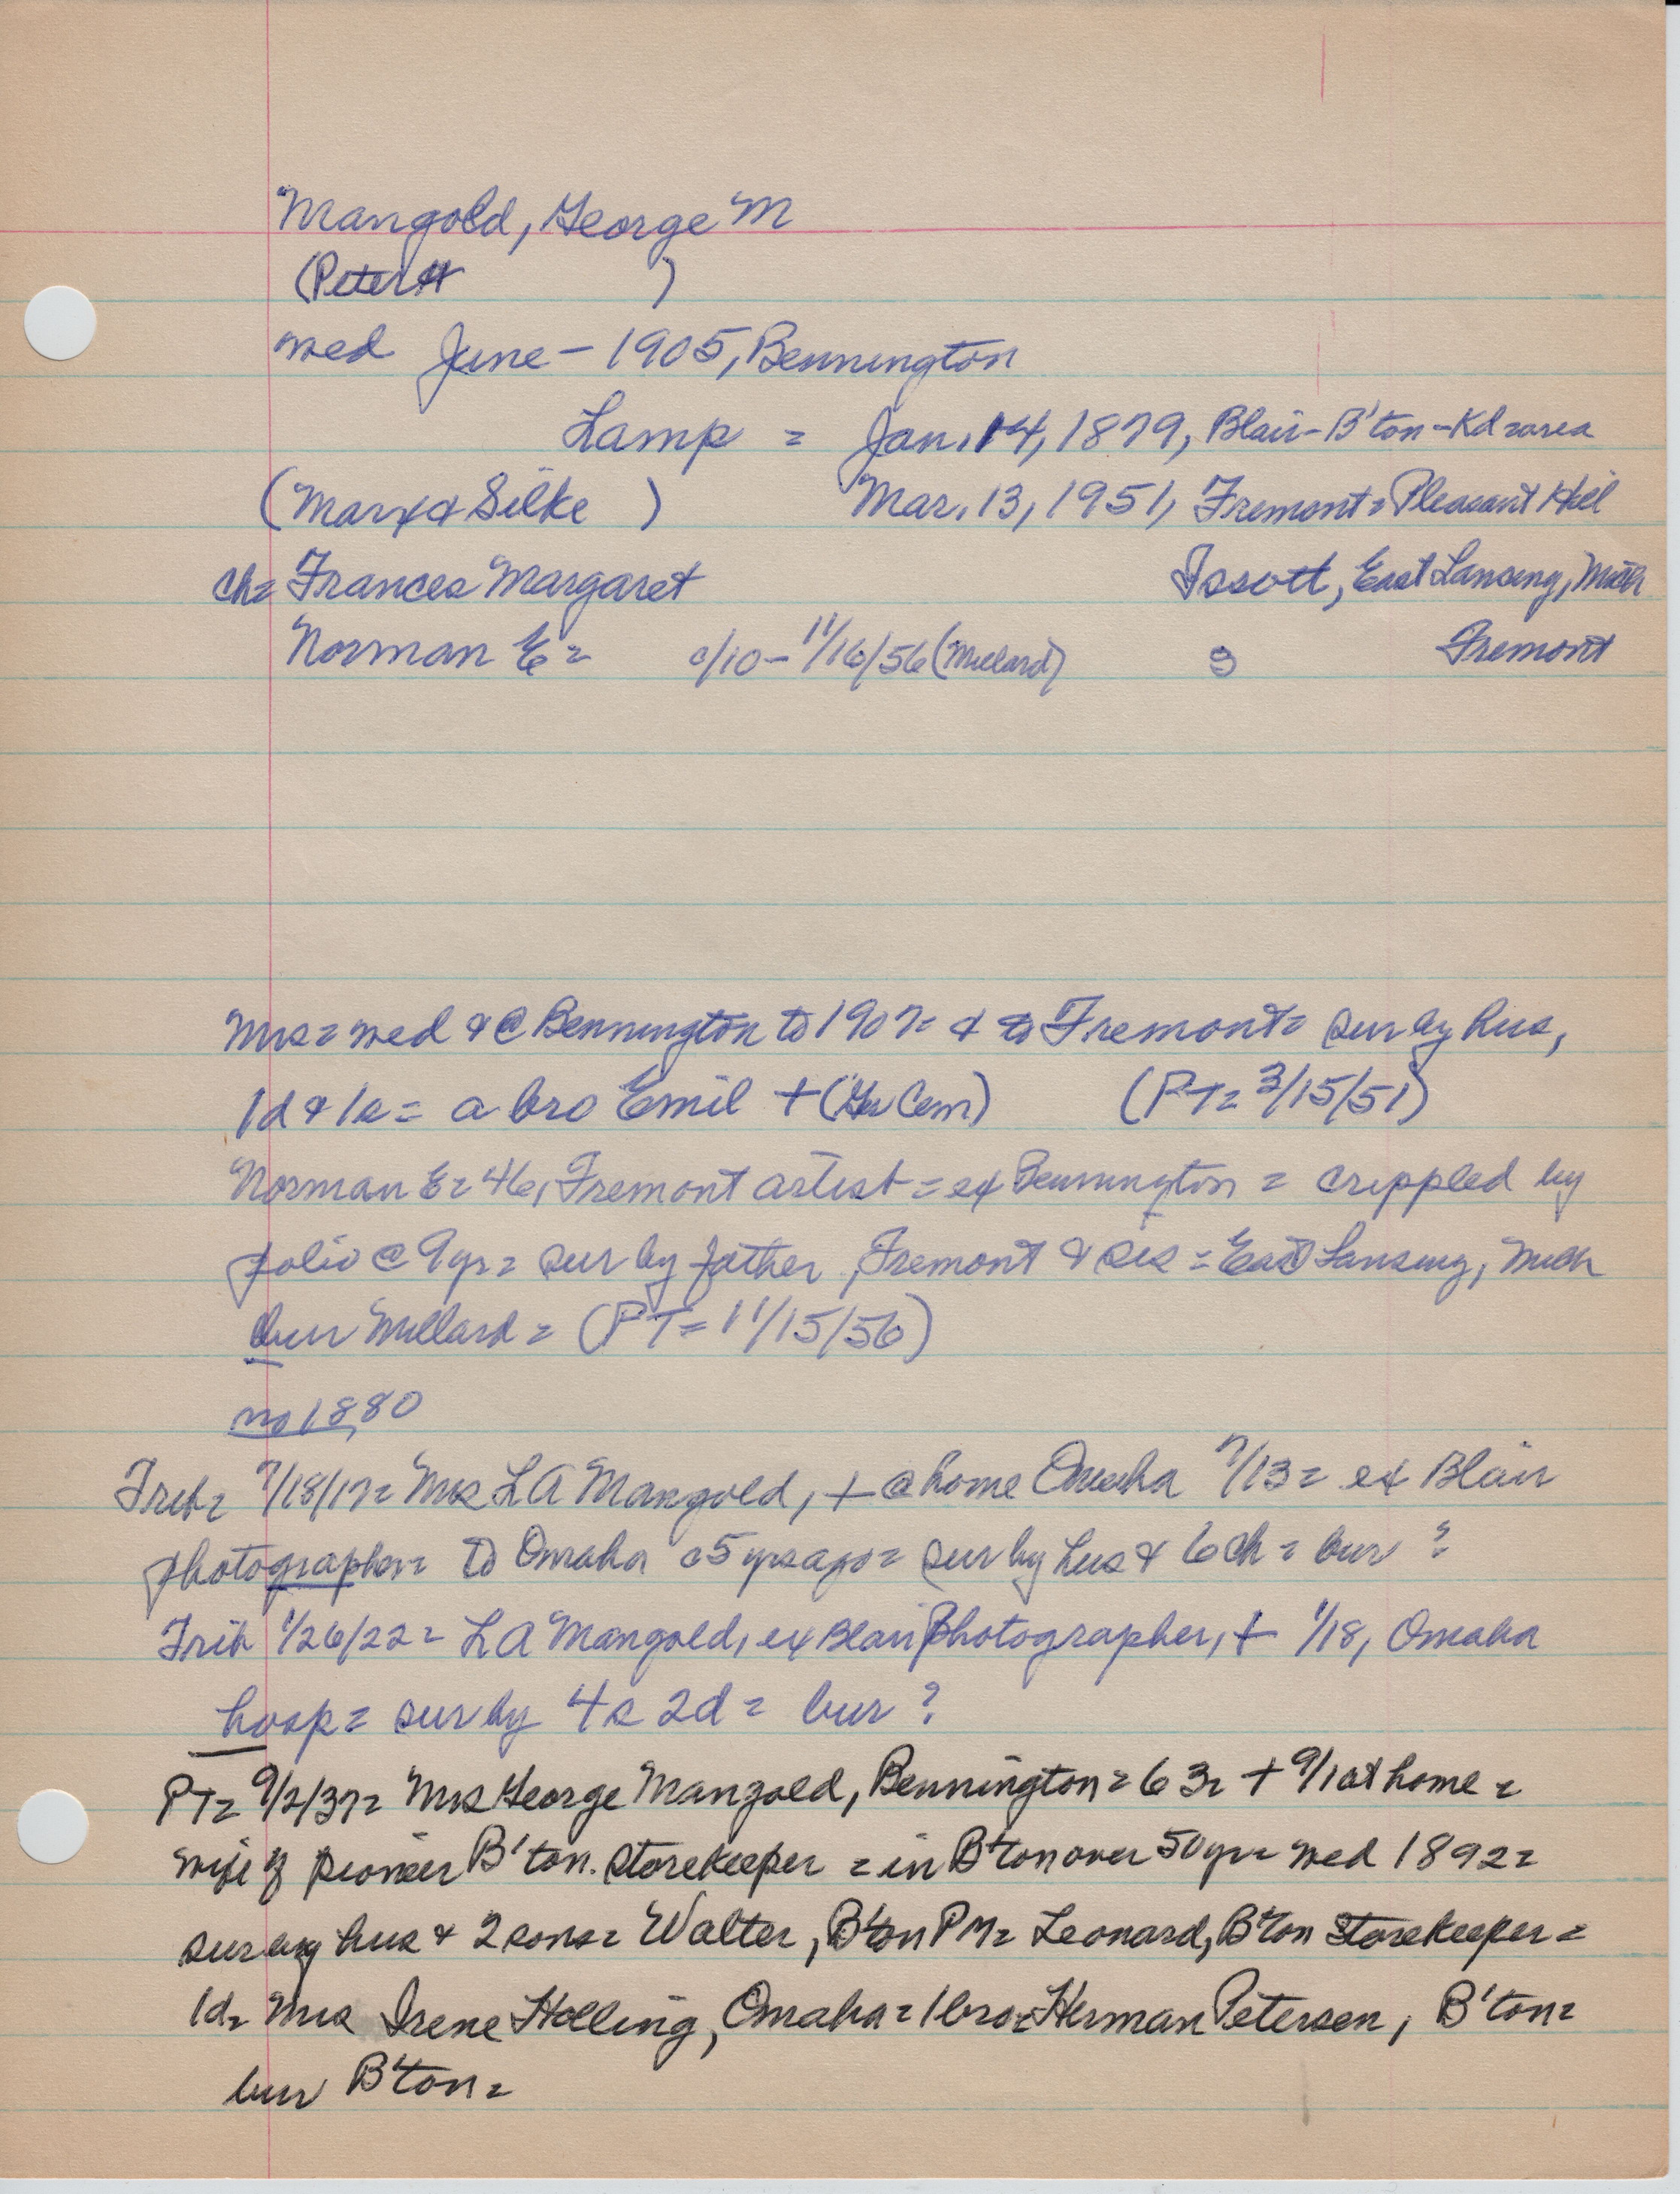 Mangold, George M
(Peter H )
wed June - 1905, Bennington
Lamp = Jan. 14, 1879, Blair - B'ton - Kd = area
(Marx & Silke ) Mar. 13, 1951, Fremont = Pleasant Hill
ch = Frances Margaret Issott, East Lansing, Mich
Norman E = c/10 - 11/16/56 (Millard) S Fremont
Mrs = wed & @ Bennington to 1907 = & to Fremont = sur by hus,
1d & 1s = a bro Emil + (Ger Cem) (PT = 3/15/51)
Norman E = 46, Fremont artist = ex Bennington = crippled by
polio @ 9 yr = sur by father, Fremont & sis = East Lansing, Mich
bur Millard = (PT = 11/15/56)
no 1880
Trib = 7/18/17 = Mrs L A Mangold, + @ home Omaha 7/13 = ex Blair
photographer = to Omaha c5 yrs ago = sur by hus & 6 ch = bur ?
Trib 1/26/22 = L A Mangold, ex Blair Photographer, + 1/18, Omaha
hosp = sur by 4s 2d = bur ?
PT = 9/2/37 = Mrs George Mangold, Bennington = 63 = + 9/1 at home =
wife of pioneer B'ton. storekeeper = in B'ton over 50 yr = wed 1892 =
sur by hus & 2 sons = Walter, B'ton PM = Leonard, B'ton Storekeeper =
1d = Mrs Irene Holling, Omaha = 1 bro = Herman Petersen, B'ton =
bur B'ton =